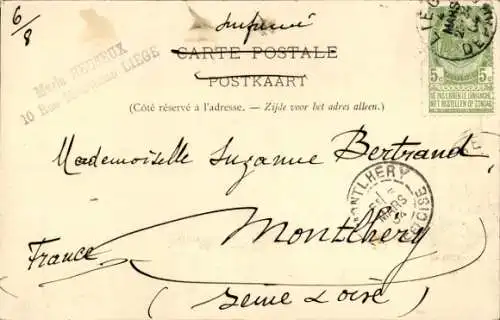 6/8
Imprimé
CARTE POSTALE
POSTKAART
(Côté réservé à l'adresse. — Zijde voor het adres alleen.)
10 Rue LIEGE
MARS
5c 5c
NE PAS LIVRER LE DIMANCHE
NIET BESTELLEN OP ZONDAG
Mademoiselle Suzanne Bertrand
MONTLHERY
MARS
Montlhéry
France
(Seine & Oise)